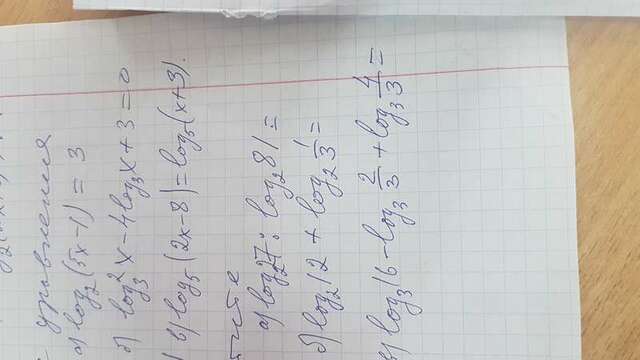 уравнения
а) log₂(5x-1) = 3
б) log₃²x - 4log₃x + 3 = 0
в) log₅(2x-8) = log₅(x+3).
а) log₂27 : log₂81 =
б) log₂12 + log₂ 1/3 =
в) log₃16 - log₃ 2/3 + log₃ 4/3 =